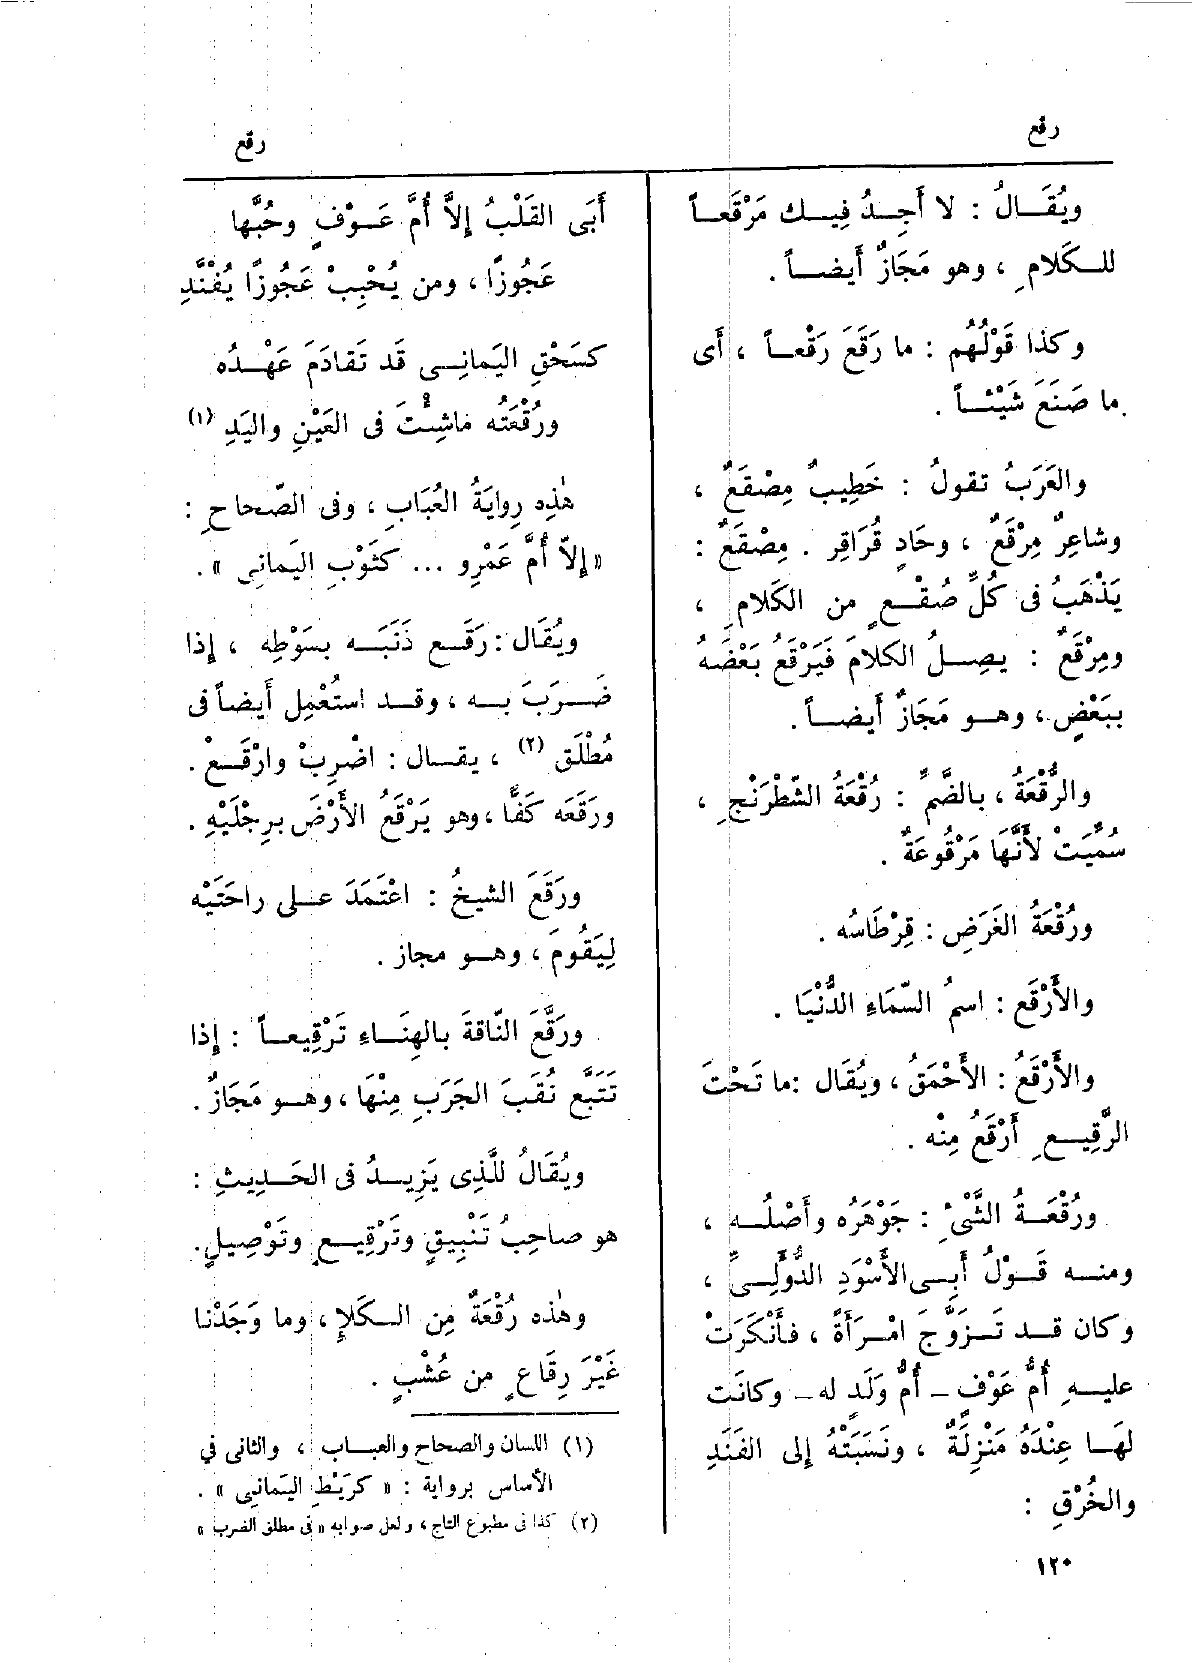 رقع
رقع
ويُقَـالُ : لا أَجِـدُ فِيـك مَرْقَعـاً
للـكَلامِ ، وهو مَجَازٌ أَيضـاً .
وكذا قَوْلُهُم : ما رَقَعَ رَقْعـاً ، أَى
ما صَنَعَ شَيْئـاً .
والعَرَبُ تقولُ : خَطِيبٌ مِصْقَعٌ ،
وشاعِرٌ مِرْقَعٌ ، وحَادٍ قُرَاقِر . مِصْقَعٌ :
يَذْهَبُ فى كُلِّ صُقْـعٍ من الكَلامِ ،
ومِرْقَعٌ : يصِـلُ الكلامَ فَيَرْقَعُ بَعْضَهُ
ببَعْضٍ ، وهـو مَجَازٌ أَيضـاً .
والرُّقْعَةُ ، بالضَّمِّ : رُقْعَةُ الشِّطْرَنْجِ ،
سُمِّيَتْ لأَنَّهَا مَرْقُوعَةٌ .
ورُقْعَةُ الغَرَضِ : قِرْطَاسُه .
والأَرْقَع : اسمُ السَّمَاءِ الدُّنْيَا .
والأَرْقَعُ : الأَحْمَقُ ، ويُقَال : ما تَحْتَ
الرَّقِيـعِ أَرْقَعُ مِنْه .
ورُقْعَـةُ الشَّىْءِ : جَوْهَرُه وأَصْلُـه ،
ومنـه قَـوْلُ أَبِـى الأَسْوَدِ الدُّؤَلِـىِّ ،
وكان قـد تَـزَوَّجَ امْـرَأَةً ، فأَنْكَرَتْ
عليـهِ أُمُّ عَوْفٍ - أُمُّ وَلَدٍ له - وكانَت
لهَـا عِنْدَهُ مَنْزِلَةٌ ، ونَسَبَتْهُ إلى الفَنَدِ
والخُرْقِ :
أَبَى القَلْبُ إِلاَّ أُمَّ عَـوْفٍ وحُبَّها
عَجُوزًا ، ومن يُحْبِبْ عَجُوزًا يُفَنَّدِ
كسَحْقِ اليَمانِـى قَد تَقادَمَ عَهْـدُه
ورُقْعَتُه ماشِئْتَ فى العَيْنِ واليَدِ (١)
هٰذِه رِوايَةُ العُبَابِ ، وفى الصّحاحِ :
« إِلاّ أُمَّ عَمْرٍو ... كثَوْبِ اليَمانِى » .
ويُقَال : رَقَـع ذَنَبَـه بسَوْطِه ، إِذا
ضَـرَبَ بـه ، وقـد استُعْمِل أَيضـاً فى
مُطْلَق (٢) ، يقـال : اضْرِبْ وارْقَـعْ .
ورَقَعَه كَفًّا ، وهو يَرْقَعُ الأَرْضَ برِجْلَيْهِ .
ورَقَعَ الشيخُ : اعْتَمَدَ عـلى راحَتَيْه
لِيَقُومَ ، وهـو مجاز .
ورَقَّعَ النّاقةَ بالهِنَـاءِ تَرْقِيعـاً : إِذا
تَتَبَّع نُقَبَ الجَرَبِ مِنْهَا ، وهـو مَجَازٌ .
ويُقَالُ للَّذِى يَزِيـدُ فى الحَـدِيثِ :
هو صاحِبُ تَنْبِيقٍ وتَرْقِيـعٍ وتَوْصِيلٍ .
وهٰذه رُقْعَةٌ مِن الـكَلإِ ، وما وَجَدْنا
غَيْرَ رِقَاعٍ من عُشْبٍ .
(١) اللسان والصحاح والعبـاب ، والثانى في
الأساس برواية : « كرَيْطِ اليَمانِى » .
(٢) كذا فى مطبوع التاج ، ولعل صوابه « فى مطلق الضرب »
١٢٠